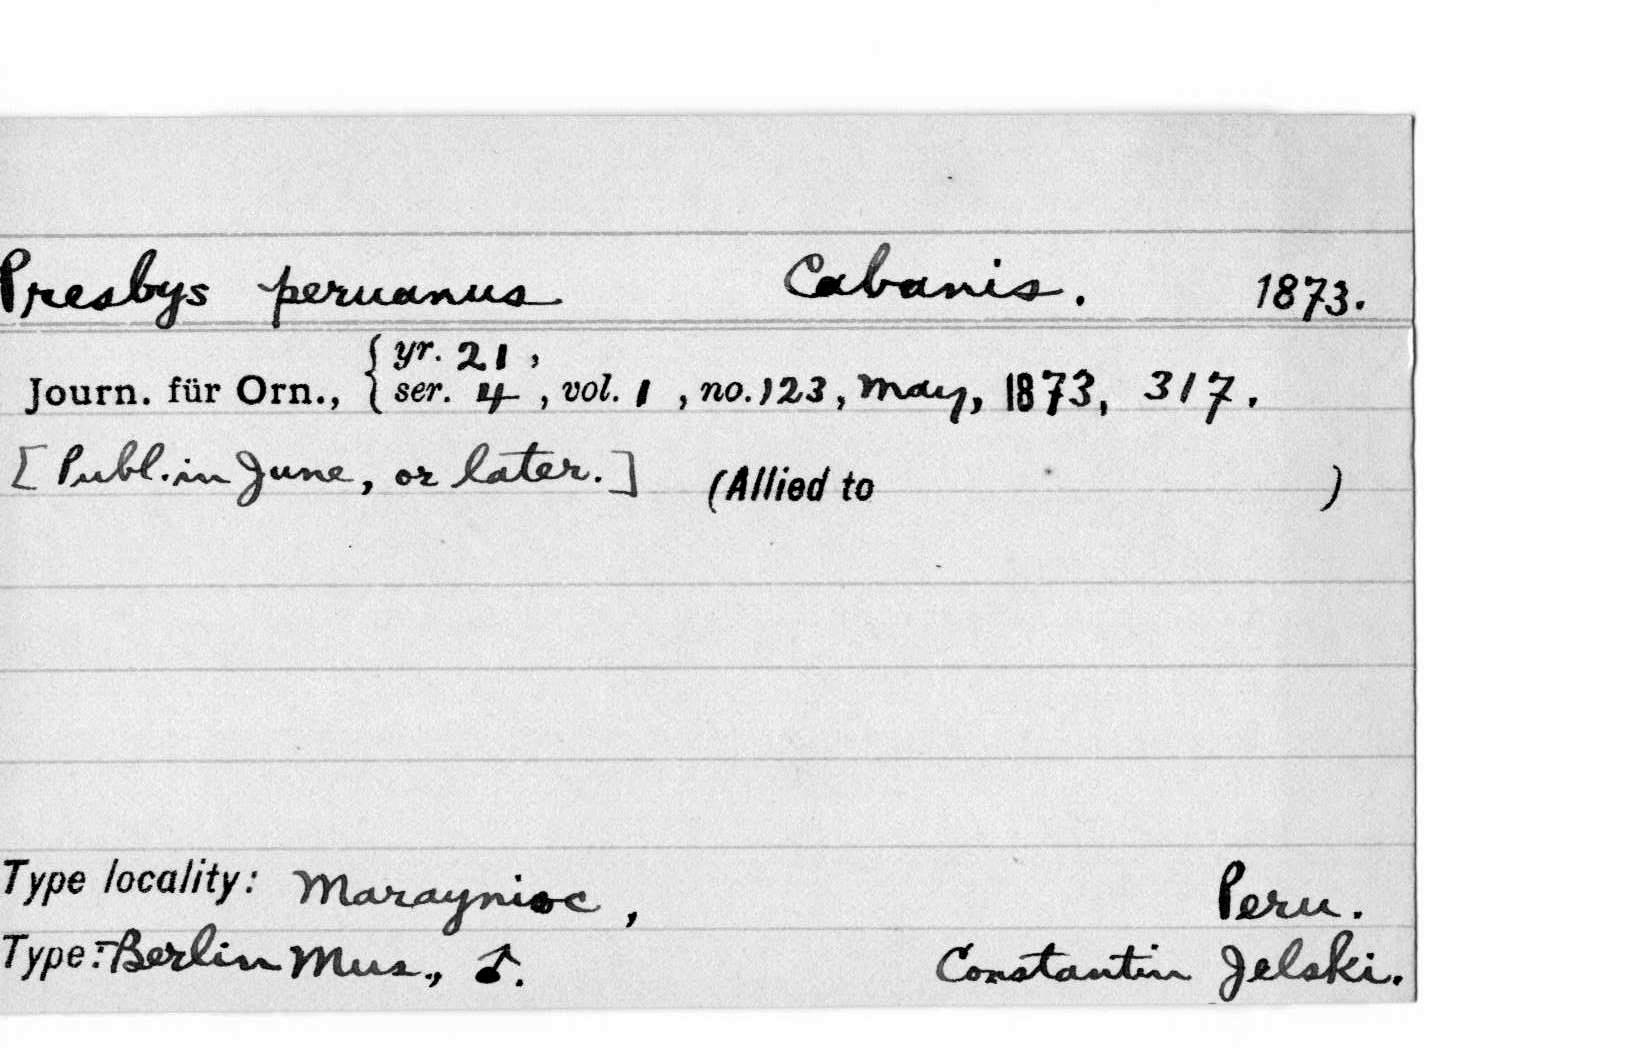 Presbys peruanus Cabanis. 1873.
Journ. für Orn., { yr. 21,
ser. 4, vol. 1, no. 123, May, 1873, 317.
[Publ. in June, or later.] (Allied to )
Type locality: Maraynioc, Peru.
Type:-Berlin Mus., ♂. Constantin Jelski.